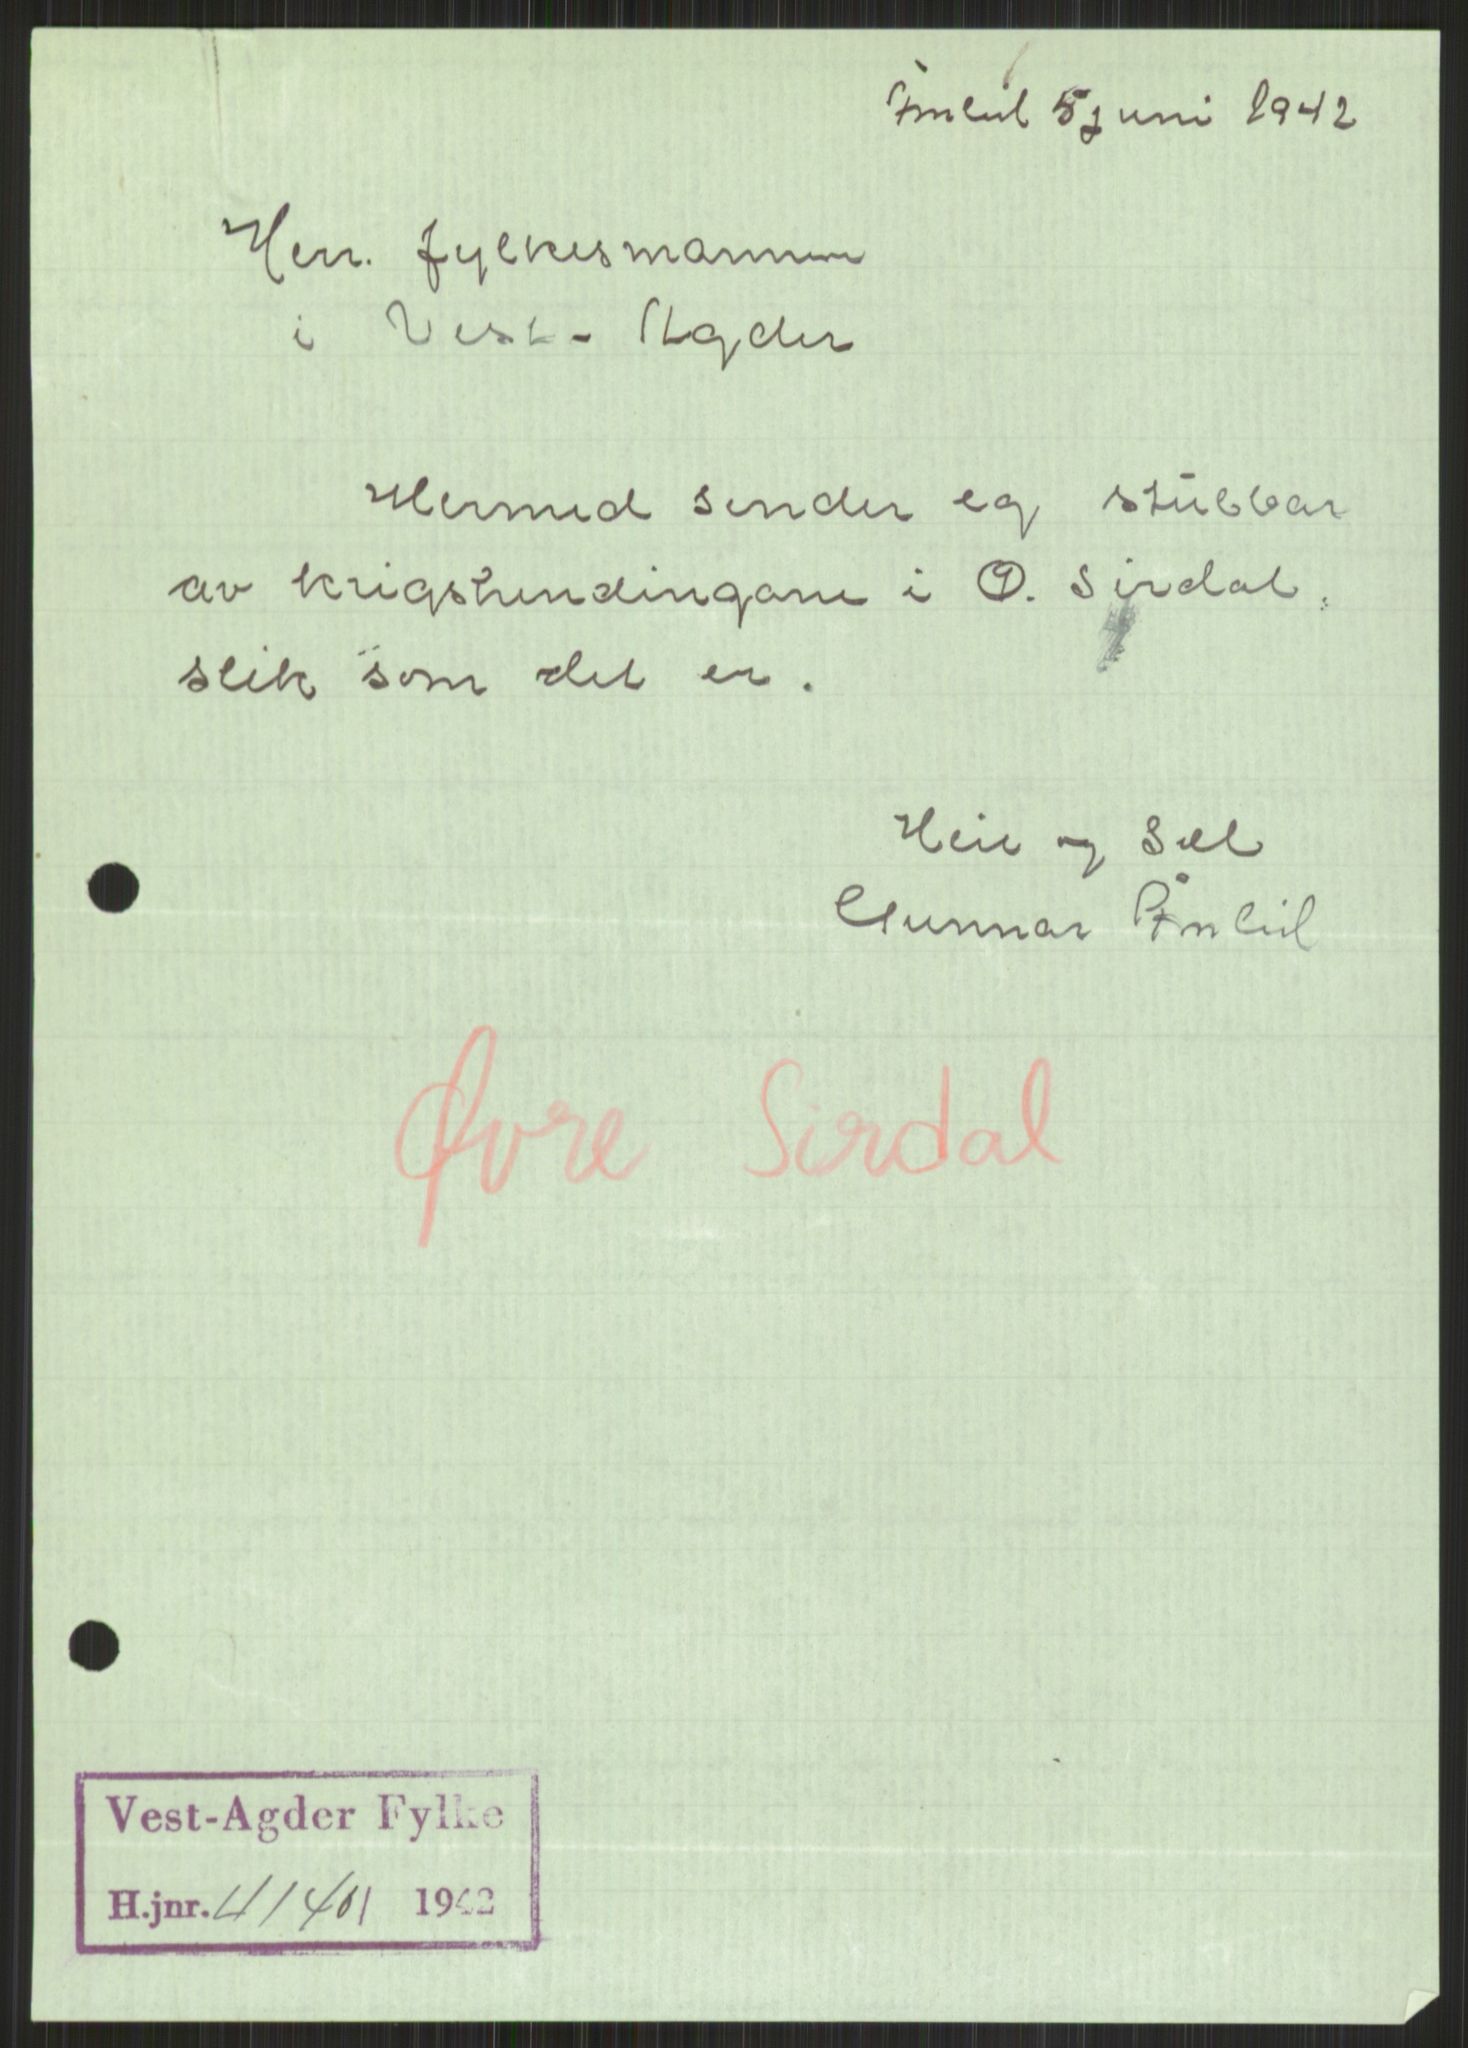 Åmlid 5 juni 1942
Herr. fylkesmannen
i Vest-Agder
Hermed sender eg stubbar
av krigshendingane i Ø. Sirdal,
slik som det er.
Heil og Sæl
Gunnar Åmlid
Øvre Sirdal
Vest-Agder Fylke
H.jnr. 1942